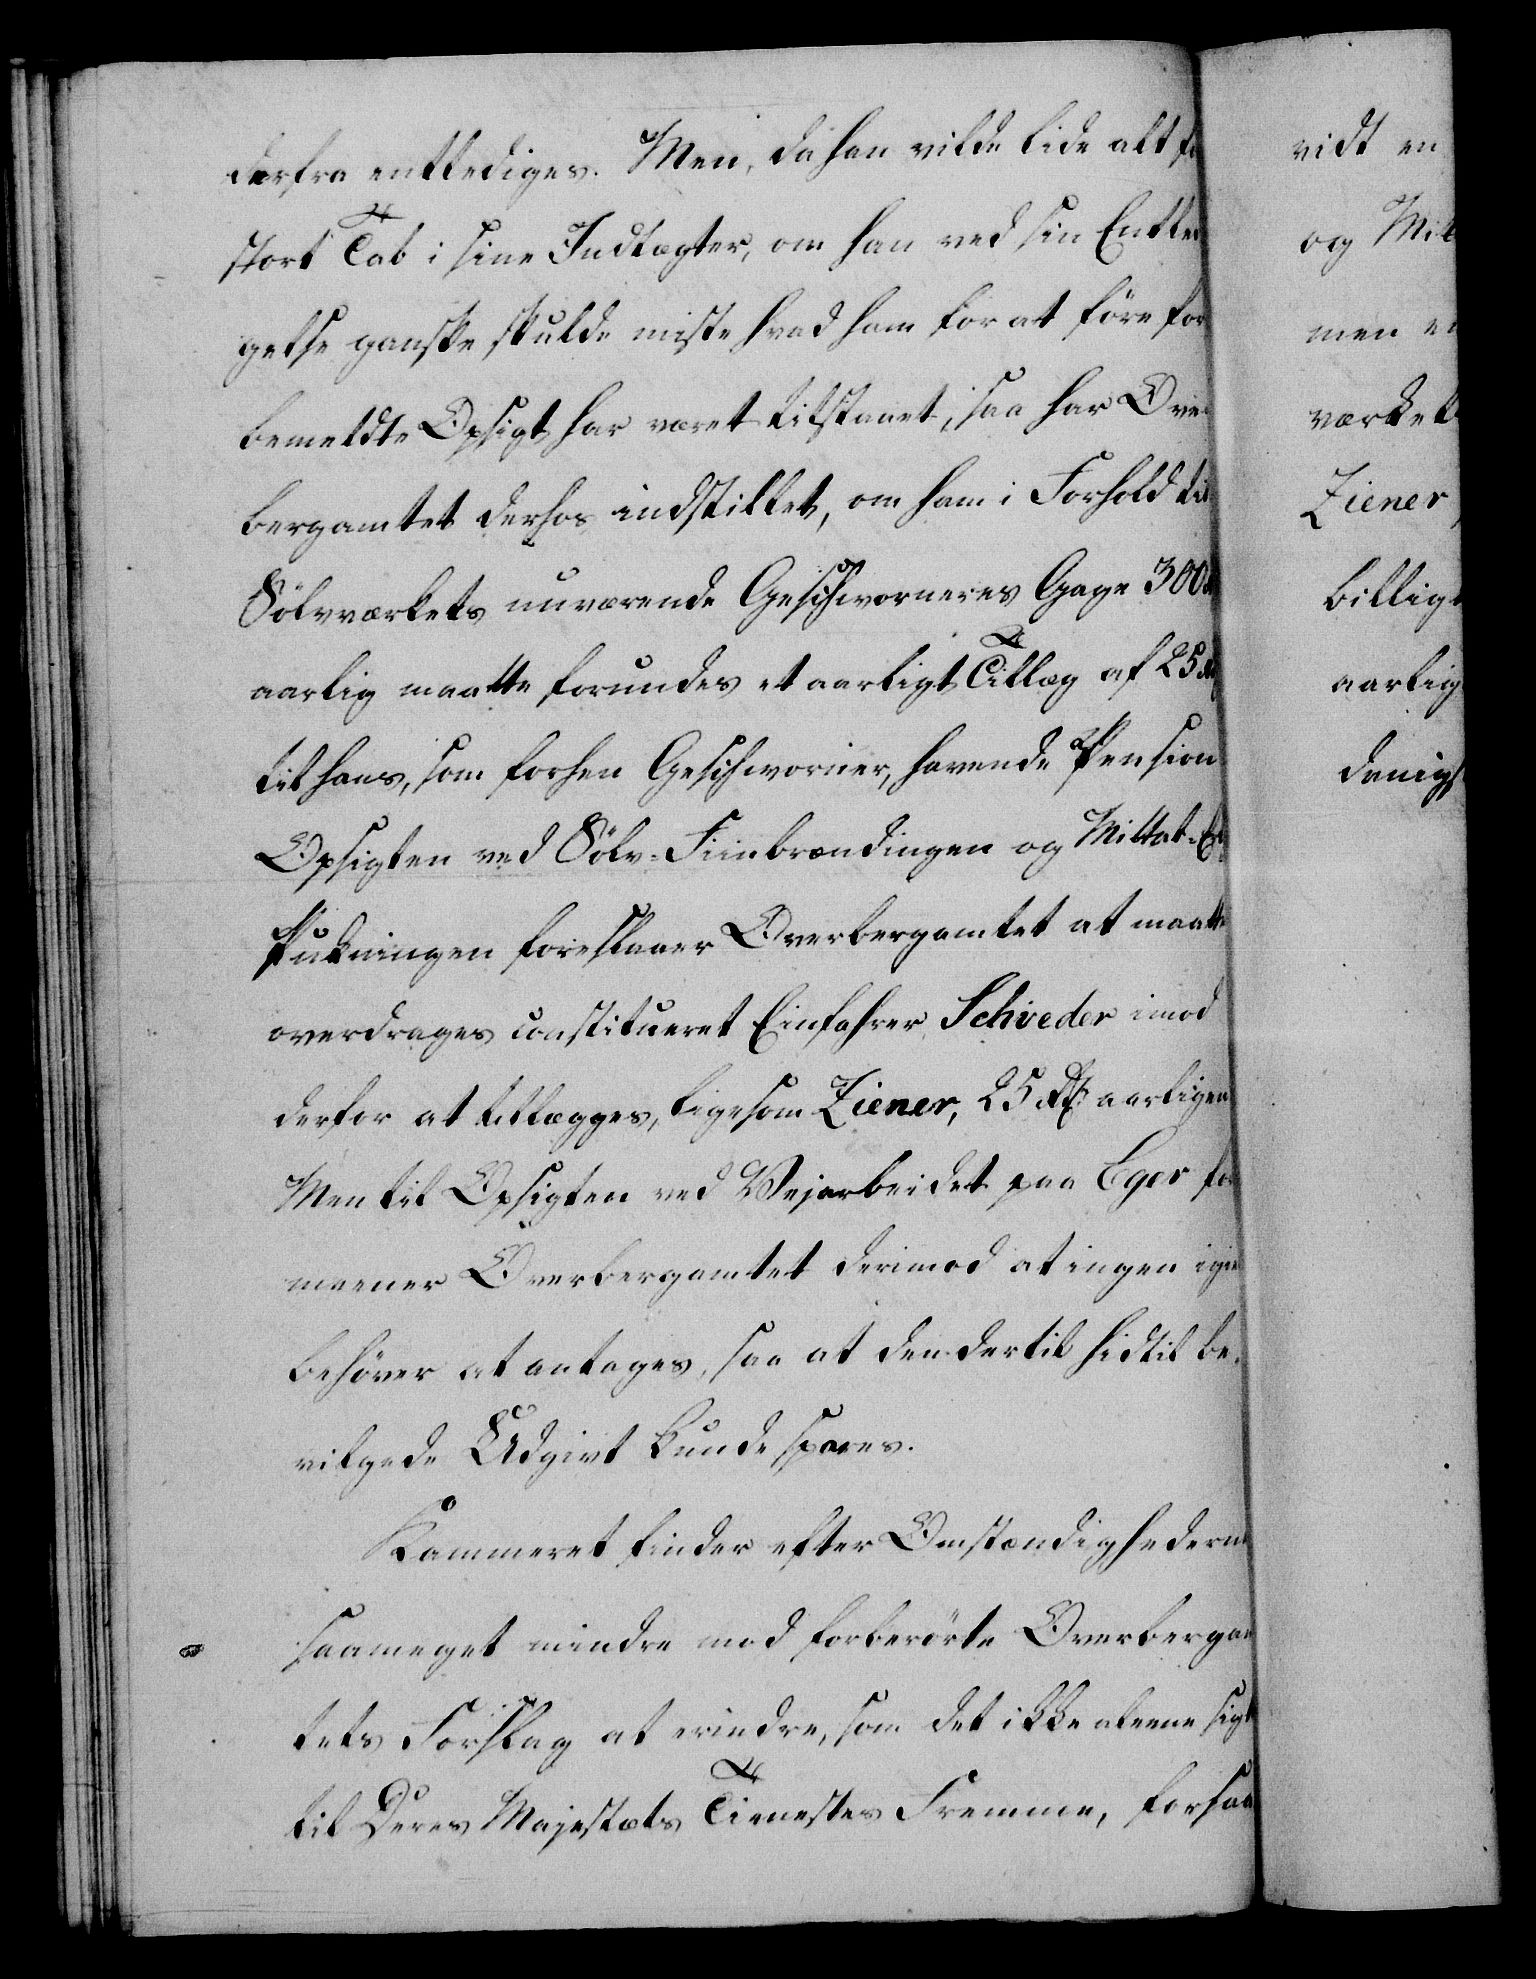 derfra entlediges. Men, da han vilde lide alt fo
stort Tab i sine Indtægter, om han ved sin Entle
gelse ganske skulde miste hvad ham for at före for
bemeldte Opsigt har været tilstaaet, saa har Ove
bergamtet derhos indstillet, om ham i Forhold til
Sölvværkets nuværende Geschworneres Gage 300
aarlig maatte forundes et aarligt Tillæg af 25
til hans, som forhen Geschworner, havende Pension
Opsigten ved Sölv-Fiinbrændingen og Mittel-Er
Pukningen foreslaaer Overbergamtet at maatte
overdrages constitueret Einfahrer Schveder imod
derfor at tillægges, ligesom Ziener, 25 Rd aarligen
Men til Opsigten ved Vejarbeidet paa Eger for
meener Overbergamtet derimod at ingen igie
behöver at antages, saa at den dertil hidtil be-
vilgede Udgivt kunde spares.
Kammeret finder efter Omstændighederne
saameget mindre mod forberörte Overbergam
tets Forslag at erindre, som det ikke alene sigt
til Deres Majestæts Tienestes Fremme, forsaa
vidt en
og Mit
men e
værket
Ziener,
billigt
aarlig
denigs